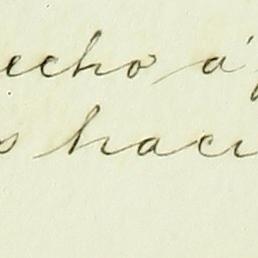 echo á
s haci